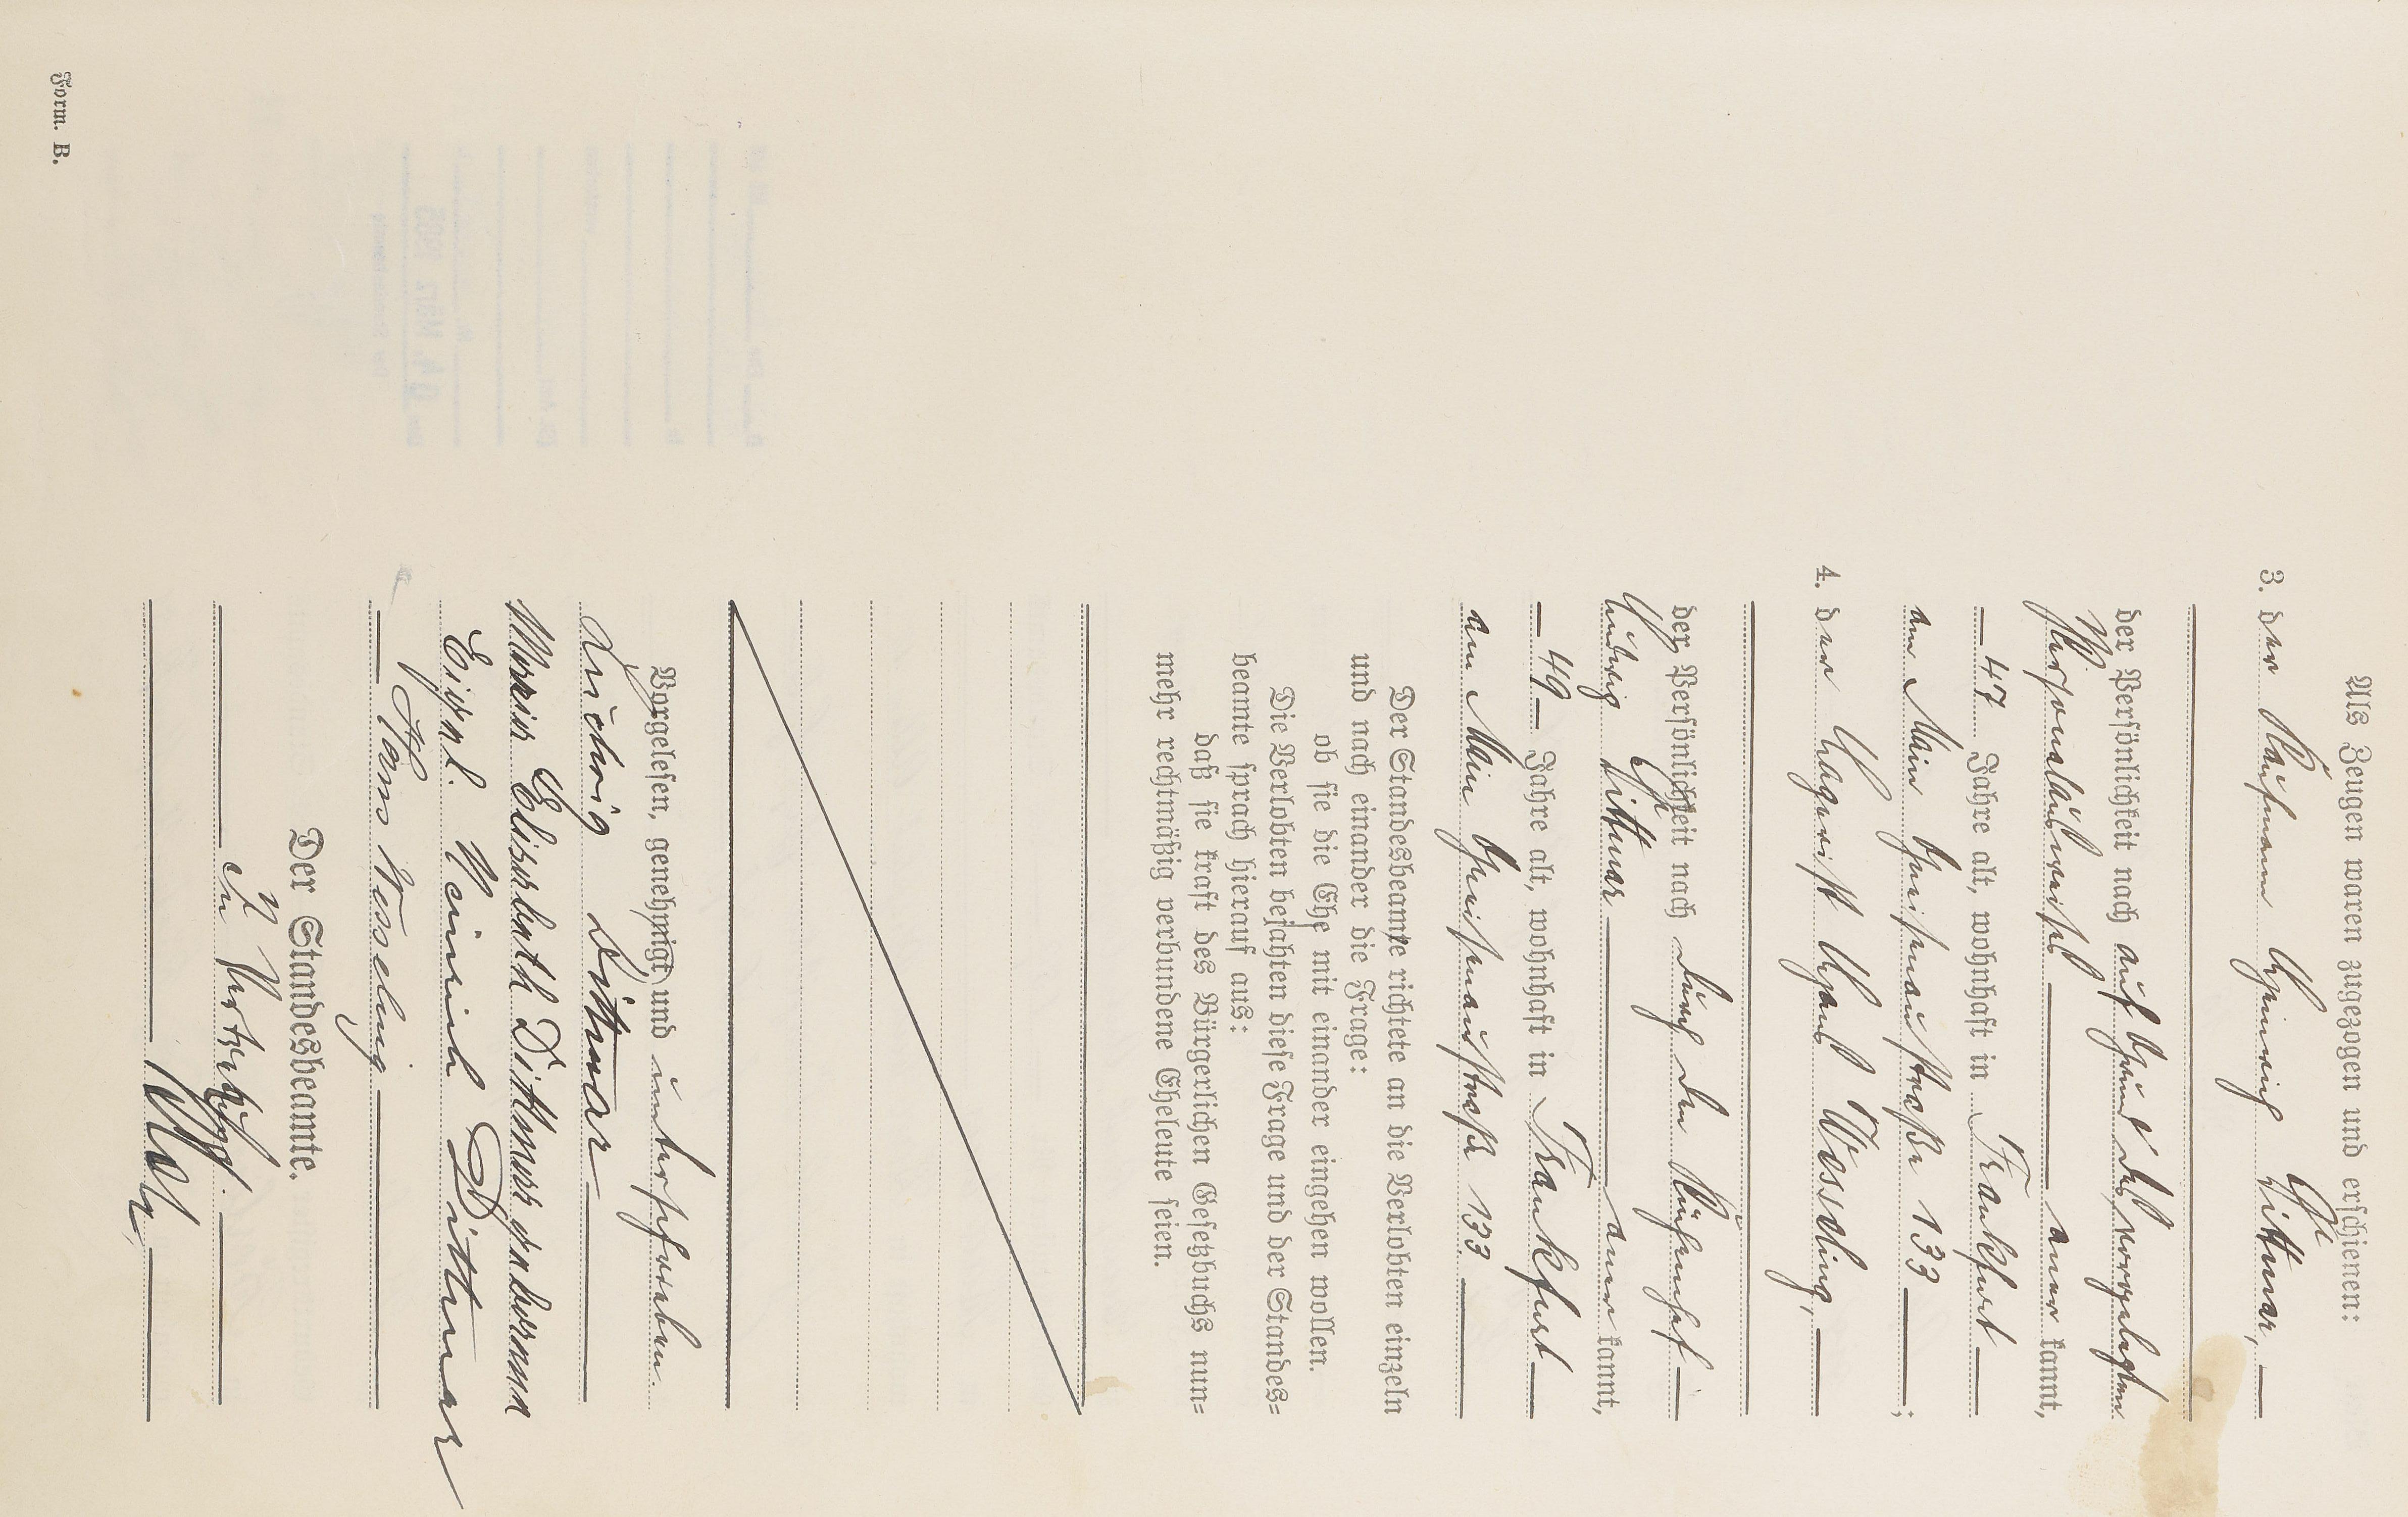 Als Zeugen waren zugezogen und erschienen:
3. der Kaufmann Heinrich Dittmar,
der Persönlichkeit nach auf Grund des vorgelegten
Personalausweises aner kannt,
47 Jahre alt, wohnhaft in Frankfurt
am Main 133;
4. der Hans Wesseling,
der Persönlichkeit nach durch den
Ludwig Dittmar aner kannt,
49 Jahre alt, wohnhaft in Frankfurt
am Main 133
Der Standesbeamte richtete an die Verlobten einzeln
und nach einander die Frage:
ob sie die Ehe mit einander eingehen wollen.
Die Verlobten bejahten diese Frage und der Standes=
beamte sprach hierauf aus:
daß sie kraft des Bürgerlichen Gesetzbuchs nun=
mehr rechtmäßig verbundene Eheleute seien.
Vorgelesen, genehmigt und unterschrieben
Ludwig Dittmar
Maria Elisabeth Dittmar geborene
Eichel. Heinrich Dittmar
Hans Wesseling
Der Standesbeamte.
In Vertretung.
Form. B.